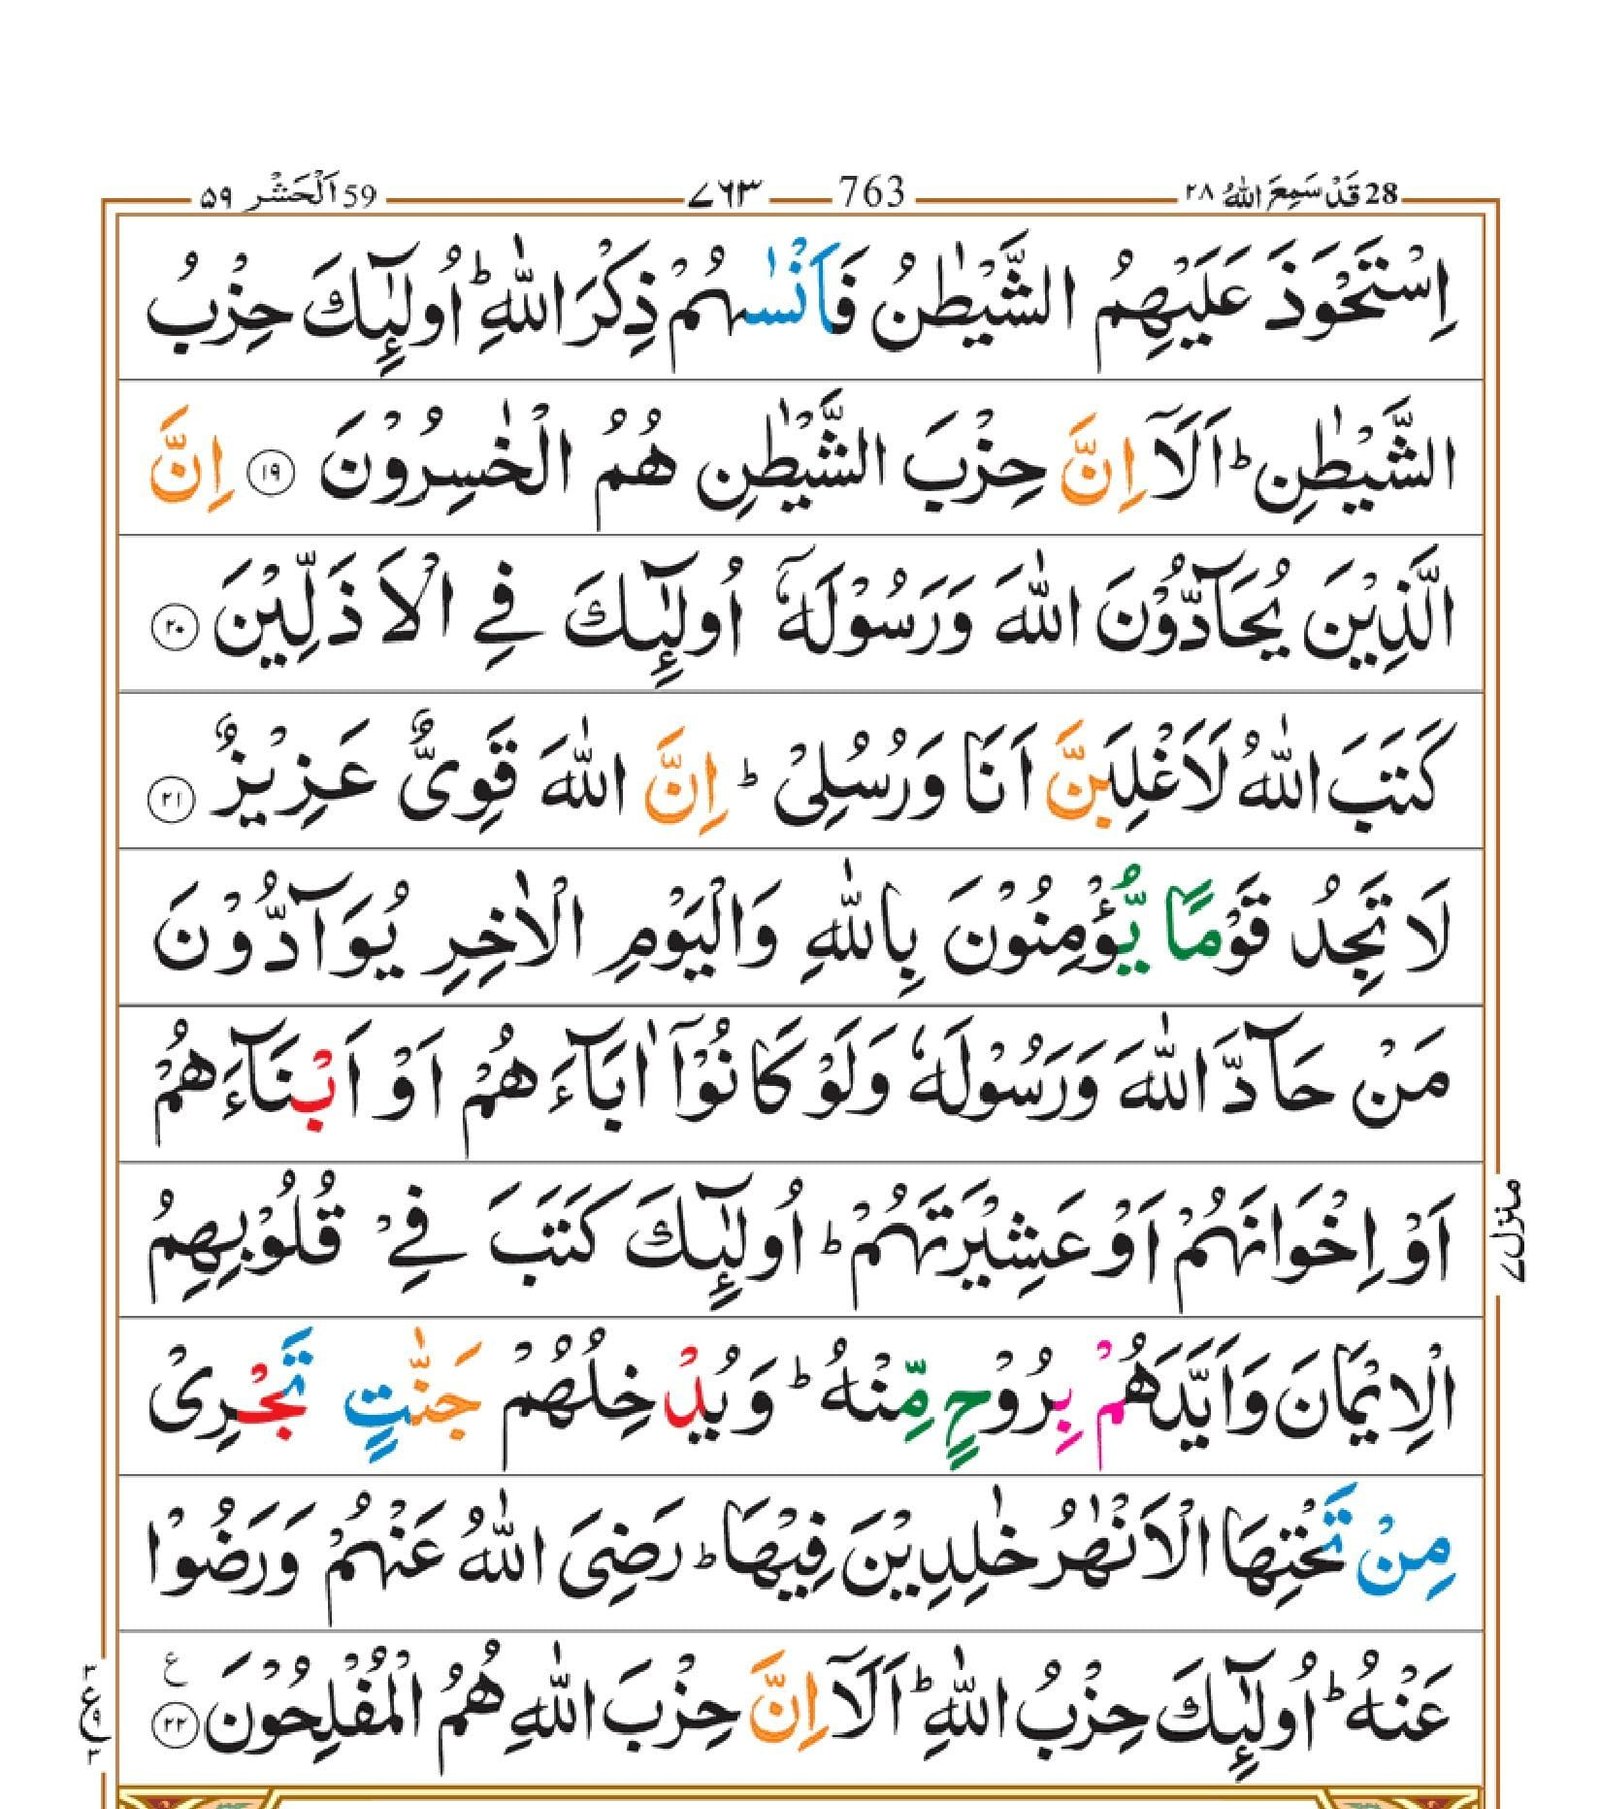 28 قَدْ سَمِعَ اللّٰهُ ۲۸ 763 ۷۶۳ 59 اَلْحَشْر ۵۹
اِسْتَحْوَذَ عَلَيْهِمُ الشَّيْطٰنُ فَاَنْسٰىهُمْ ذِكْرَ اللّٰهِ ؕ اُولٰٓئِكَ حِزْبُ
الشَّيْطٰنِ ؕ اَلَاۤ اِنَّ حِزْبَ الشَّيْطٰنِ هُمُ الْخٰسِرُوْنَ ۱۹ اِنَّ
الَّذِيْنَ يُحَآدُّوْنَ اللّٰهَ وَرَسُوْلَهٗۤ اُولٰٓئِكَ فِي الْاَذَلِّيْنَ ۲۰
كَتَبَ اللّٰهُ لَاَغْلِبَنَّ اَنَا وَرُسُلِىْ ؕ اِنَّ اللّٰهَ قَوِىٌّ عَزِيْزٌ ۲۱
لَا تَجِدُ قَوْمًا يُّؤْمِنُوْنَ بِاللّٰهِ وَالْيَوْمِ الْاٰخِرِ يُوَآدُّوْنَ
مَنْ حَآدَّ اللّٰهَ وَرَسُوْلَهٗ وَلَوْ كَانُوْۤا اٰبَآءَهُمْ اَوْ اَبْنَآءَهُمْ
اَوْ اِخْوَانَهُمْ اَوْ عَشِيْرَتَهُمْ ؕ اُولٰٓئِكَ كَتَبَ فِيْ قُلُوْبِهِمُ
الْاِيْمَانَ وَاَيَّدَهُمْ بِرُوْحٍ مِّنْهُ ؕ وَيُدْخِلُهُمْ جَنّٰتٍ تَجْرِىْ
مِنْ تَحْتِهَا الْاَنْهٰرُ خٰلِدِيْنَ فِيْهَا ؕ رَضِىَ اللّٰهُ عَنْهُمْ وَرَضُوْا
عَنْهُ ؕ اُولٰٓئِكَ حِزْبُ اللّٰهِ ؕ اَلَاۤ اِنَّ حِزْبَ اللّٰهِ هُمُ الْمُفْلِحُوْنَ ۲۲ ع
منزل ۷
۳ ع ۹ ۲